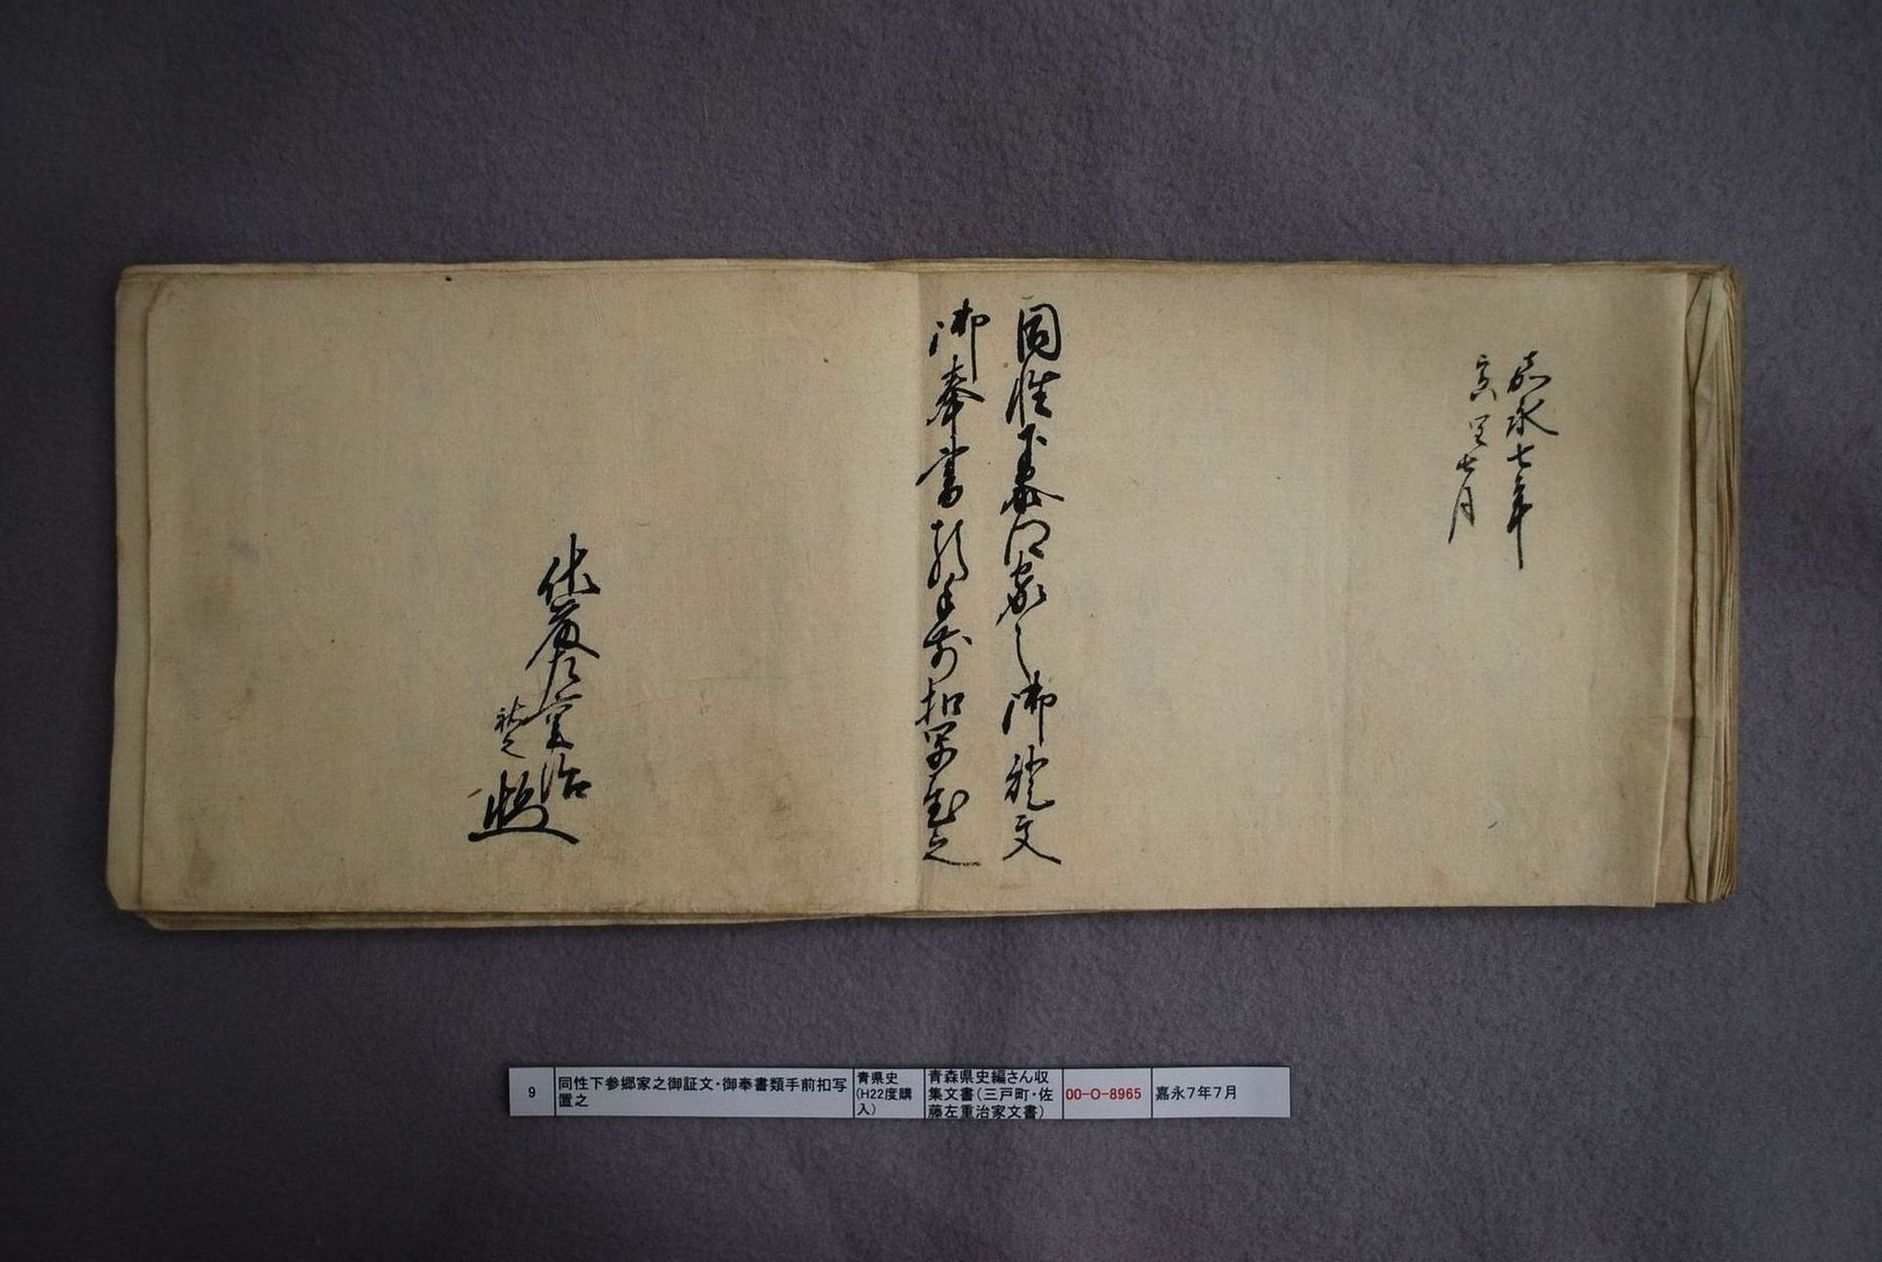 嘉永七年
寅閏七月
同性下参郷家之御証文
御奉書類手前扣写置之
佐藤左重治
9
同性下参郷家之御証文・御奉書類手前扣写
置之
青県史
(H22度購
入)
青森県史編さん収
集文書(三戸町・佐
藤左重治家文書)
00-O-8965
嘉永7年7月